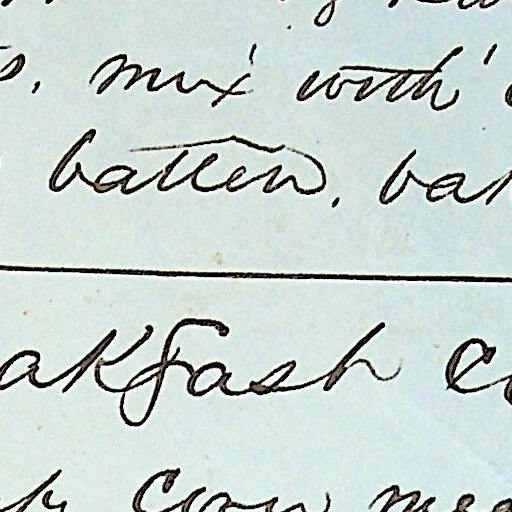 mix with
batter, bak
akfast C
Corn mea